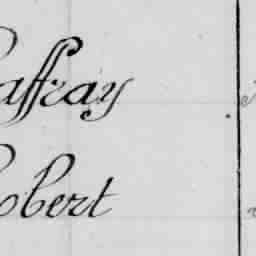 affray
obert